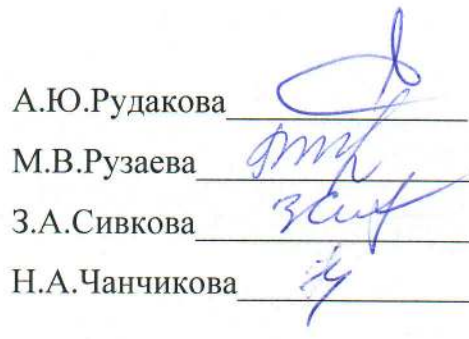 А.Ю.Рудакова
М.В.Рузаева
З.А.Сивкова
Н.А.Чанчикова